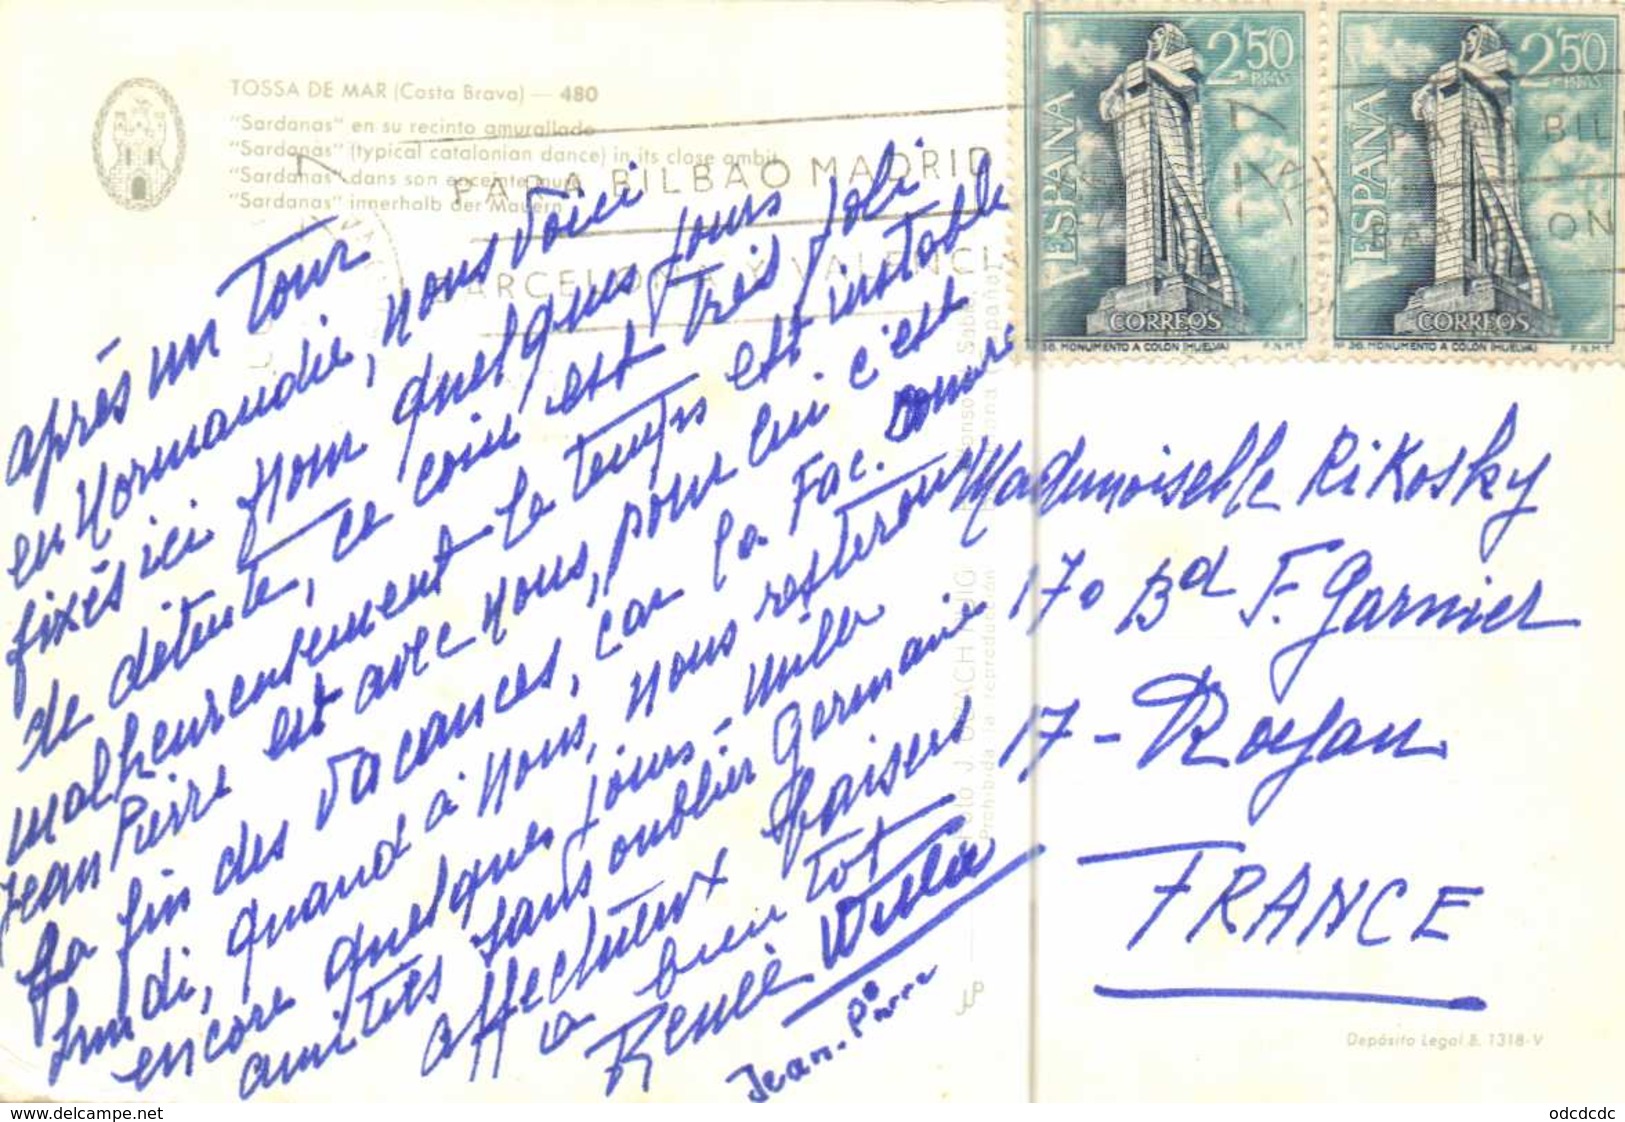 TOSSA DE MAR (Costa Brava) — 480
"Sardanas" en su recinto amurallado
"Sardanas" (typical catalonian dance) in its close ambit
"Sardanas" dans son enceinte mur
"Sardanas" innerhalb der Mauern
PARA BILBAO MADRID
BARCELONA Y VALENCIA
ESPAÑA
2'50
PTAS
CORREOS
MONUMENTO A COLON (HUELVA)
F.N.M.T.
ESPAÑA
2'50
PTAS
CORREOS
MONUMENTO A COLON (HUELVA)
F.N.M.T.
après un tour
en Normandie, nous voici
fixés ici pour quelques jours
de détente, ce coin est très joli
malheureusement le temps est instable
Jean Pierre est avec nous, pour lui c'est
la fin des vacances, car la Fac.
lundi, quand à nous, nous resterons
encore quelques jours - mille
amitiés sans oublier Germaine
affectueux baisers
a bien tot
Renée
Jean-Pierre
Mademoiselle Rikosky
170 Bd F. Garnier
17 - Royan
FRANCE
Prohibida la reproducción
Depósito Legal B. 1318-V
www.delcampe.net
odcdcdc